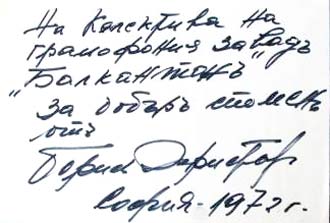 На Колектива на
грамофония заводъ
„Балкантонъ"
за добъръ споменъ
отъ
Борис Христов
София - 1972 г.